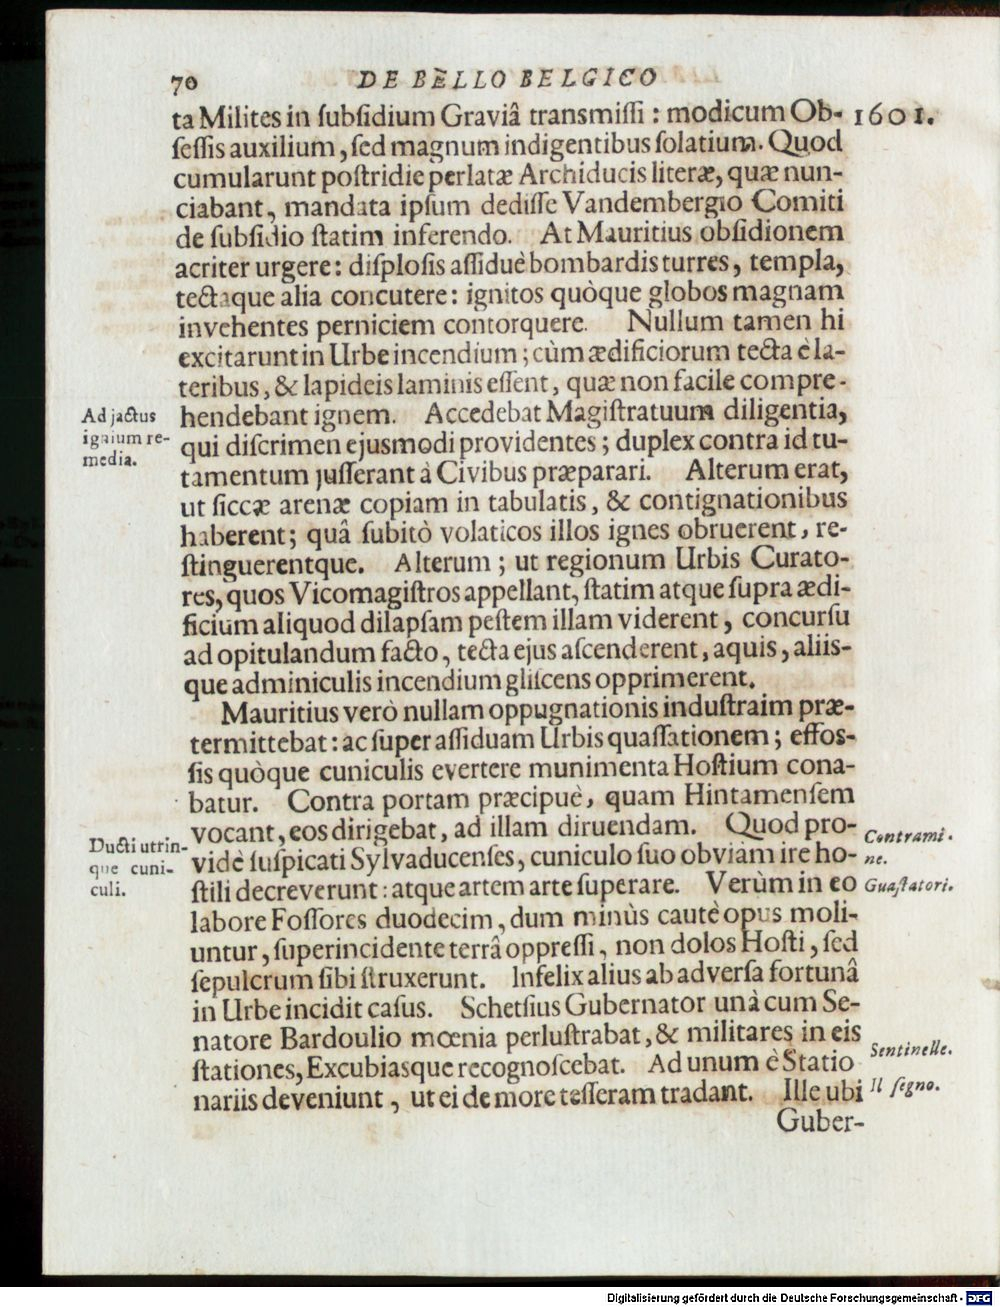 70
DE BELLO BELGICO
ta Milites in ſubſidium Graviâ transmiſſi : modicum Ob-
1601.
ſeſſis auxilium, ſed magnum indigentibus ſolatium. Quod
cumularunt poſtridie perlatæ Archiducis literæ, quæ nun-
ciabant, mandata ipſum dediſſe Vandembergio Comiti
de ſubſidio ſtatim inferendo. At Mauritius obſidionem
acriter urgere: diſploſis aſſiduè bombardis turres, templa,
tectaque alia concutere: ignitos quòque globos magnam
invehentes perniciem contorquere. Nullum tamen hi
excitarunt in Urbe incendium; cùm ædificiorum tecta è la-
teribus, & lapideis laminis eſſent, quæ non facile compre-
hendebant ignem. Accedebat Magiſtratuum diligentia,
qui diſcrimen ejusmodi providentes; duplex contra id tu-
tamentum juſſerant à Civibus præparari. Alterum erat,
ut ſiccæ arenæ copiam in tabulatis, & contignationibus
haberent; quâ ſubitò volaticos illos ignes obruerent, re-
ſtinguerentque. Alterum; ut regionum Urbis Curato-
res, quos Vicomagiſtros appellant, ſtatim atque ſupra ædi-
ficium aliquod dilapſam peſtem illam viderent, concurſu
ad opitulandum facto, tecta ejus aſcenderent, aquis, aliis-
que adminiculis incendium gliſcens opprimerent.
Ad jactus
ignium re-
media.
Mauritius verò nullam oppugnationis induſtraim præ-
termittebat: ac ſuper aſſiduam Urbis quaſſationem; effoſ-
ſis quòque cuniculis evertere munimenta Hoſtium cona-
batur. Contra portam præcipuè, quam Hintamenſem
vocant, eos dirigebat, ad illam diruendam. Quod pro-
vidè ſuſpicati Sylvaducenſes, cuniculo ſuo obviàm ire ho-
ſtili decreverunt: atque artem arte ſuperare. Verùm in eo
labore Foſſores duodecim, dum minùs cautè opus moli-
untur, ſuperincidente terrâ oppreſſi, non dolos Hoſti, ſed
ſepulcrum ſibi ſtruxerunt. Infelix alius ab adverſa fortunâ
in Urbe incidit caſus. Schetſius Gubernator unà cum Se-
natore Bardoulio mœnia perluſtrabat, & militares in eis
ſtationes, Excubiasque recognoſcebat. Ad unum è Statio
nariis deveniunt, ut ei de more teſſeram tradant. Ille ubi
Guber-
Ducti utrin-
que cuni-
culi.
Contrami.
ne.
Guaſtatori.
Sentinelle.
Il ſegno.
Digitalisierung gefördert durch die Deutsche Forschungsgemeinschaft - DFG